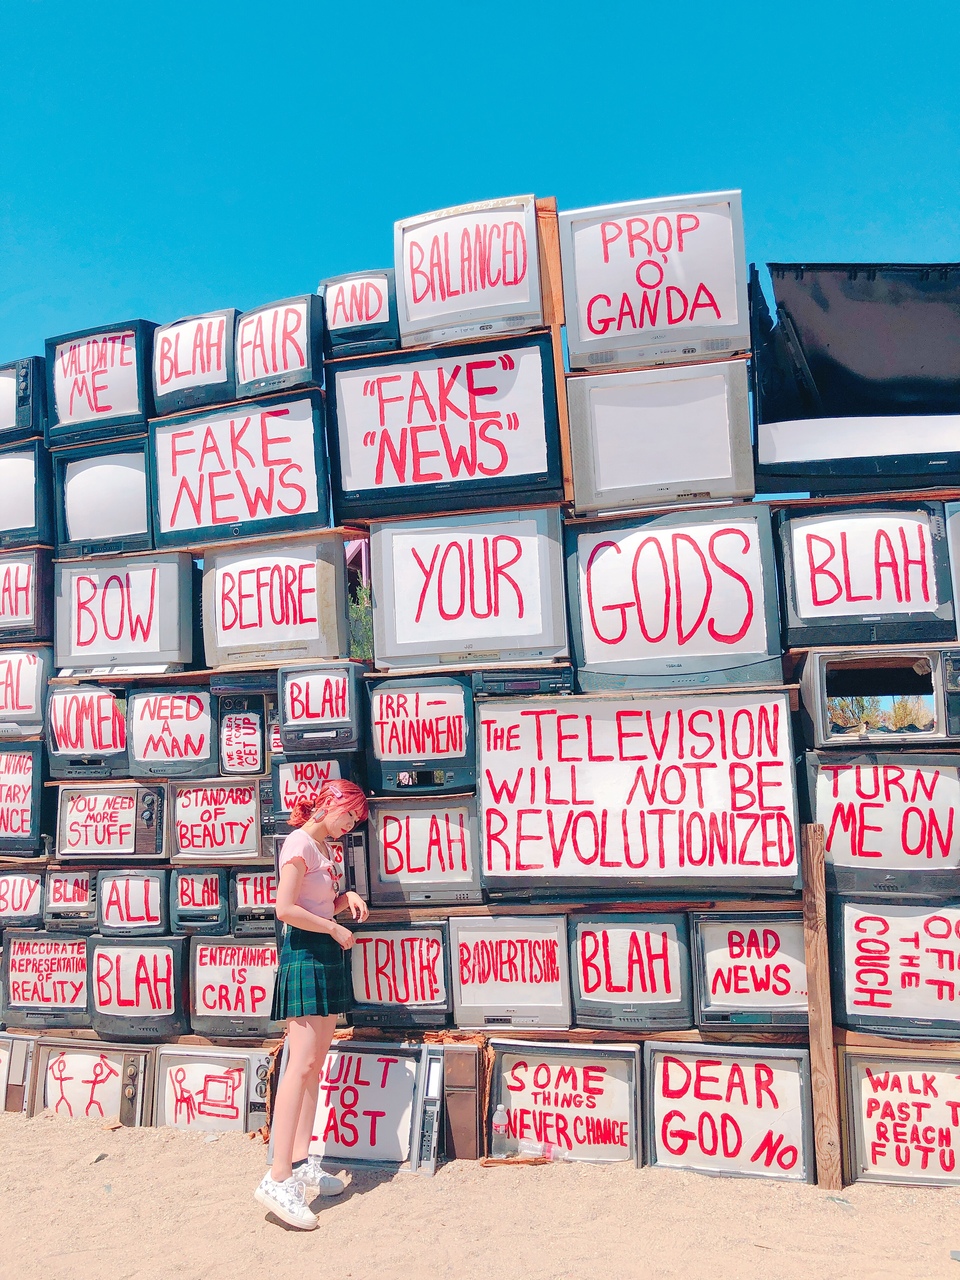 BALANCED
PROP
O'
GANDA
AND
VALIDATE
ME
BLAH
FAIR
"FAKE"
"NEWS"
FAKE
NEWS
BOW
BEFORE
YOUR
GODS
BLAH
AH
WOMEN
NEED
A
MAN
I'VE FALLEN
AND I CAN'T
GET UP
BLAH
IRRI-
TAINMENT
THE TELEVISION
WILL NOT BE
REVOLUTIONIZED
HOW
LOVE
YOU NEED
MORE
STUFF
"STANDARD"
OF
"BEAUTY"
BLAH
TURN
ME ON
BUY
BLAH
ALL
BLAH
THE
INACCURATE
REPRESENTATION
OF
REALITY
BLAH
ENTERTAINMEN
IS
CRAP
TRUTH?
BADVERTISING
BLAH
BAD
NEWS...
OFF
THE
COUCH
UILT
TO
LAST
SOME
THINGS
NEVER CHANGE
DEAR
GOD NO
WALK
PAST T
REACH
FUTU